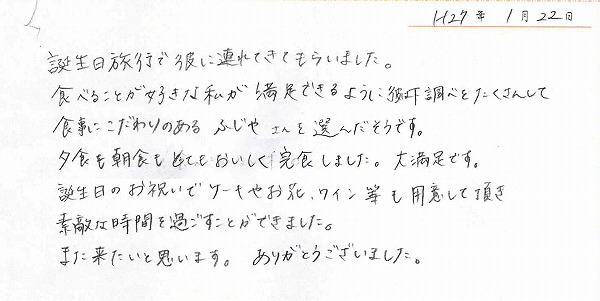 H27年 1月22日
誕生日旅行で彼に連れてきてもらいました。
食べることが好きな私が満足できるように彼が下調べをたくさんして
食事にこだわりのある ふじや さんを選んだそうです。
夕食も朝食もとてもおいしく完食しました。大満足です。
誕生日のお祝いでケーキやお花、ワイン等も用意して頂き
素敵な時間を過ごすことができました。
また来たいと思います。 ありがとうございました。